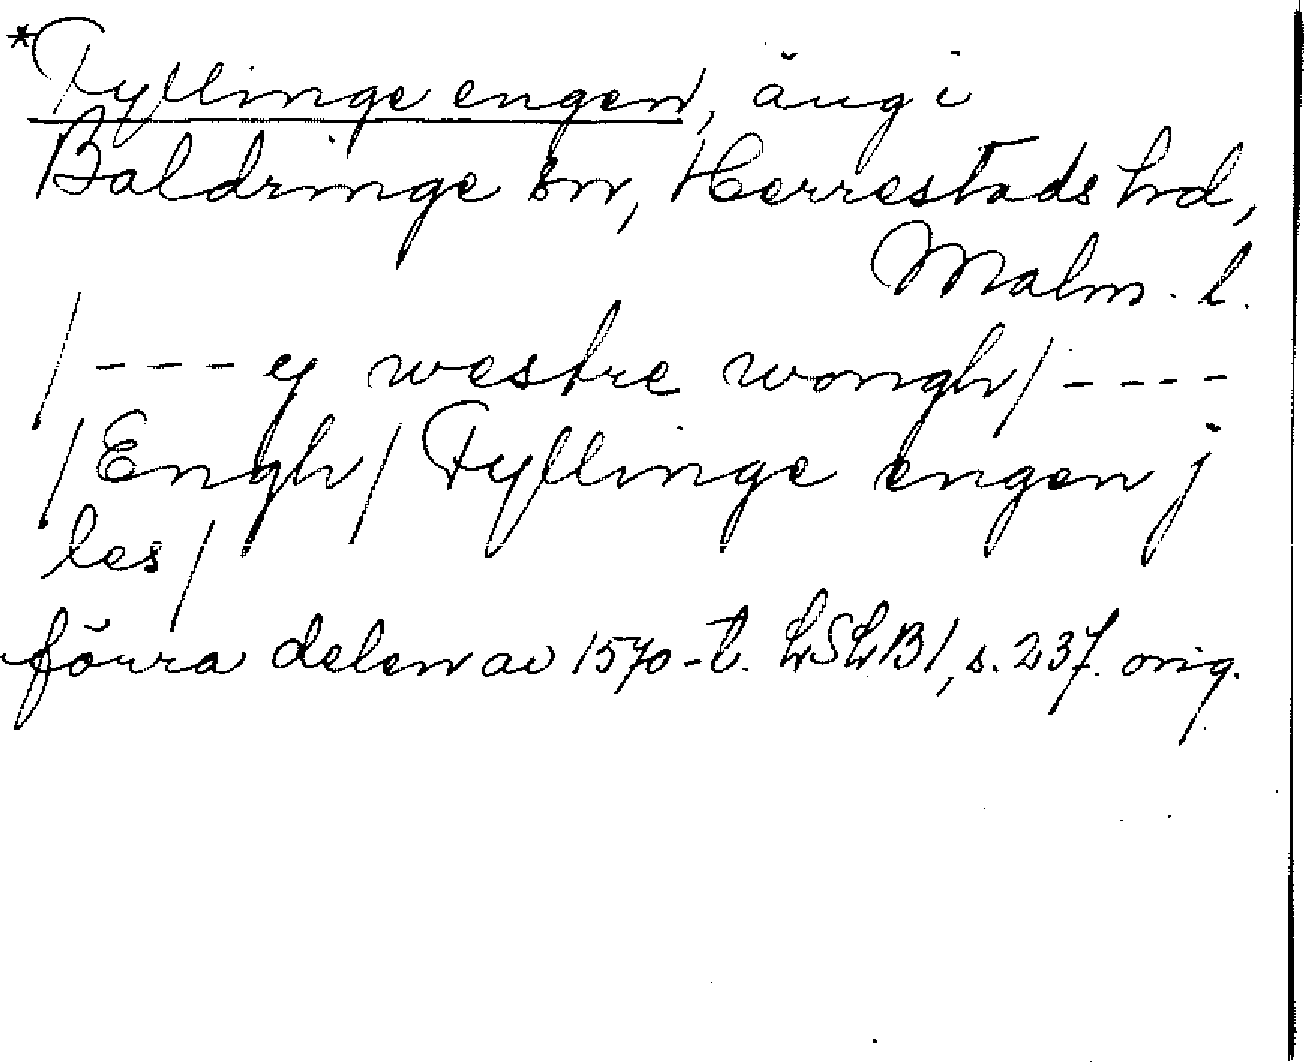 *Fyllinge engen, äng i
Baldringe sn, Herrestads hd,
Malm. l.
/---- ej westre wongh/----
/Engh/ Fyllinge engen j
les/
förra delen av 1570-t. LSLB1, s. 237. orig.